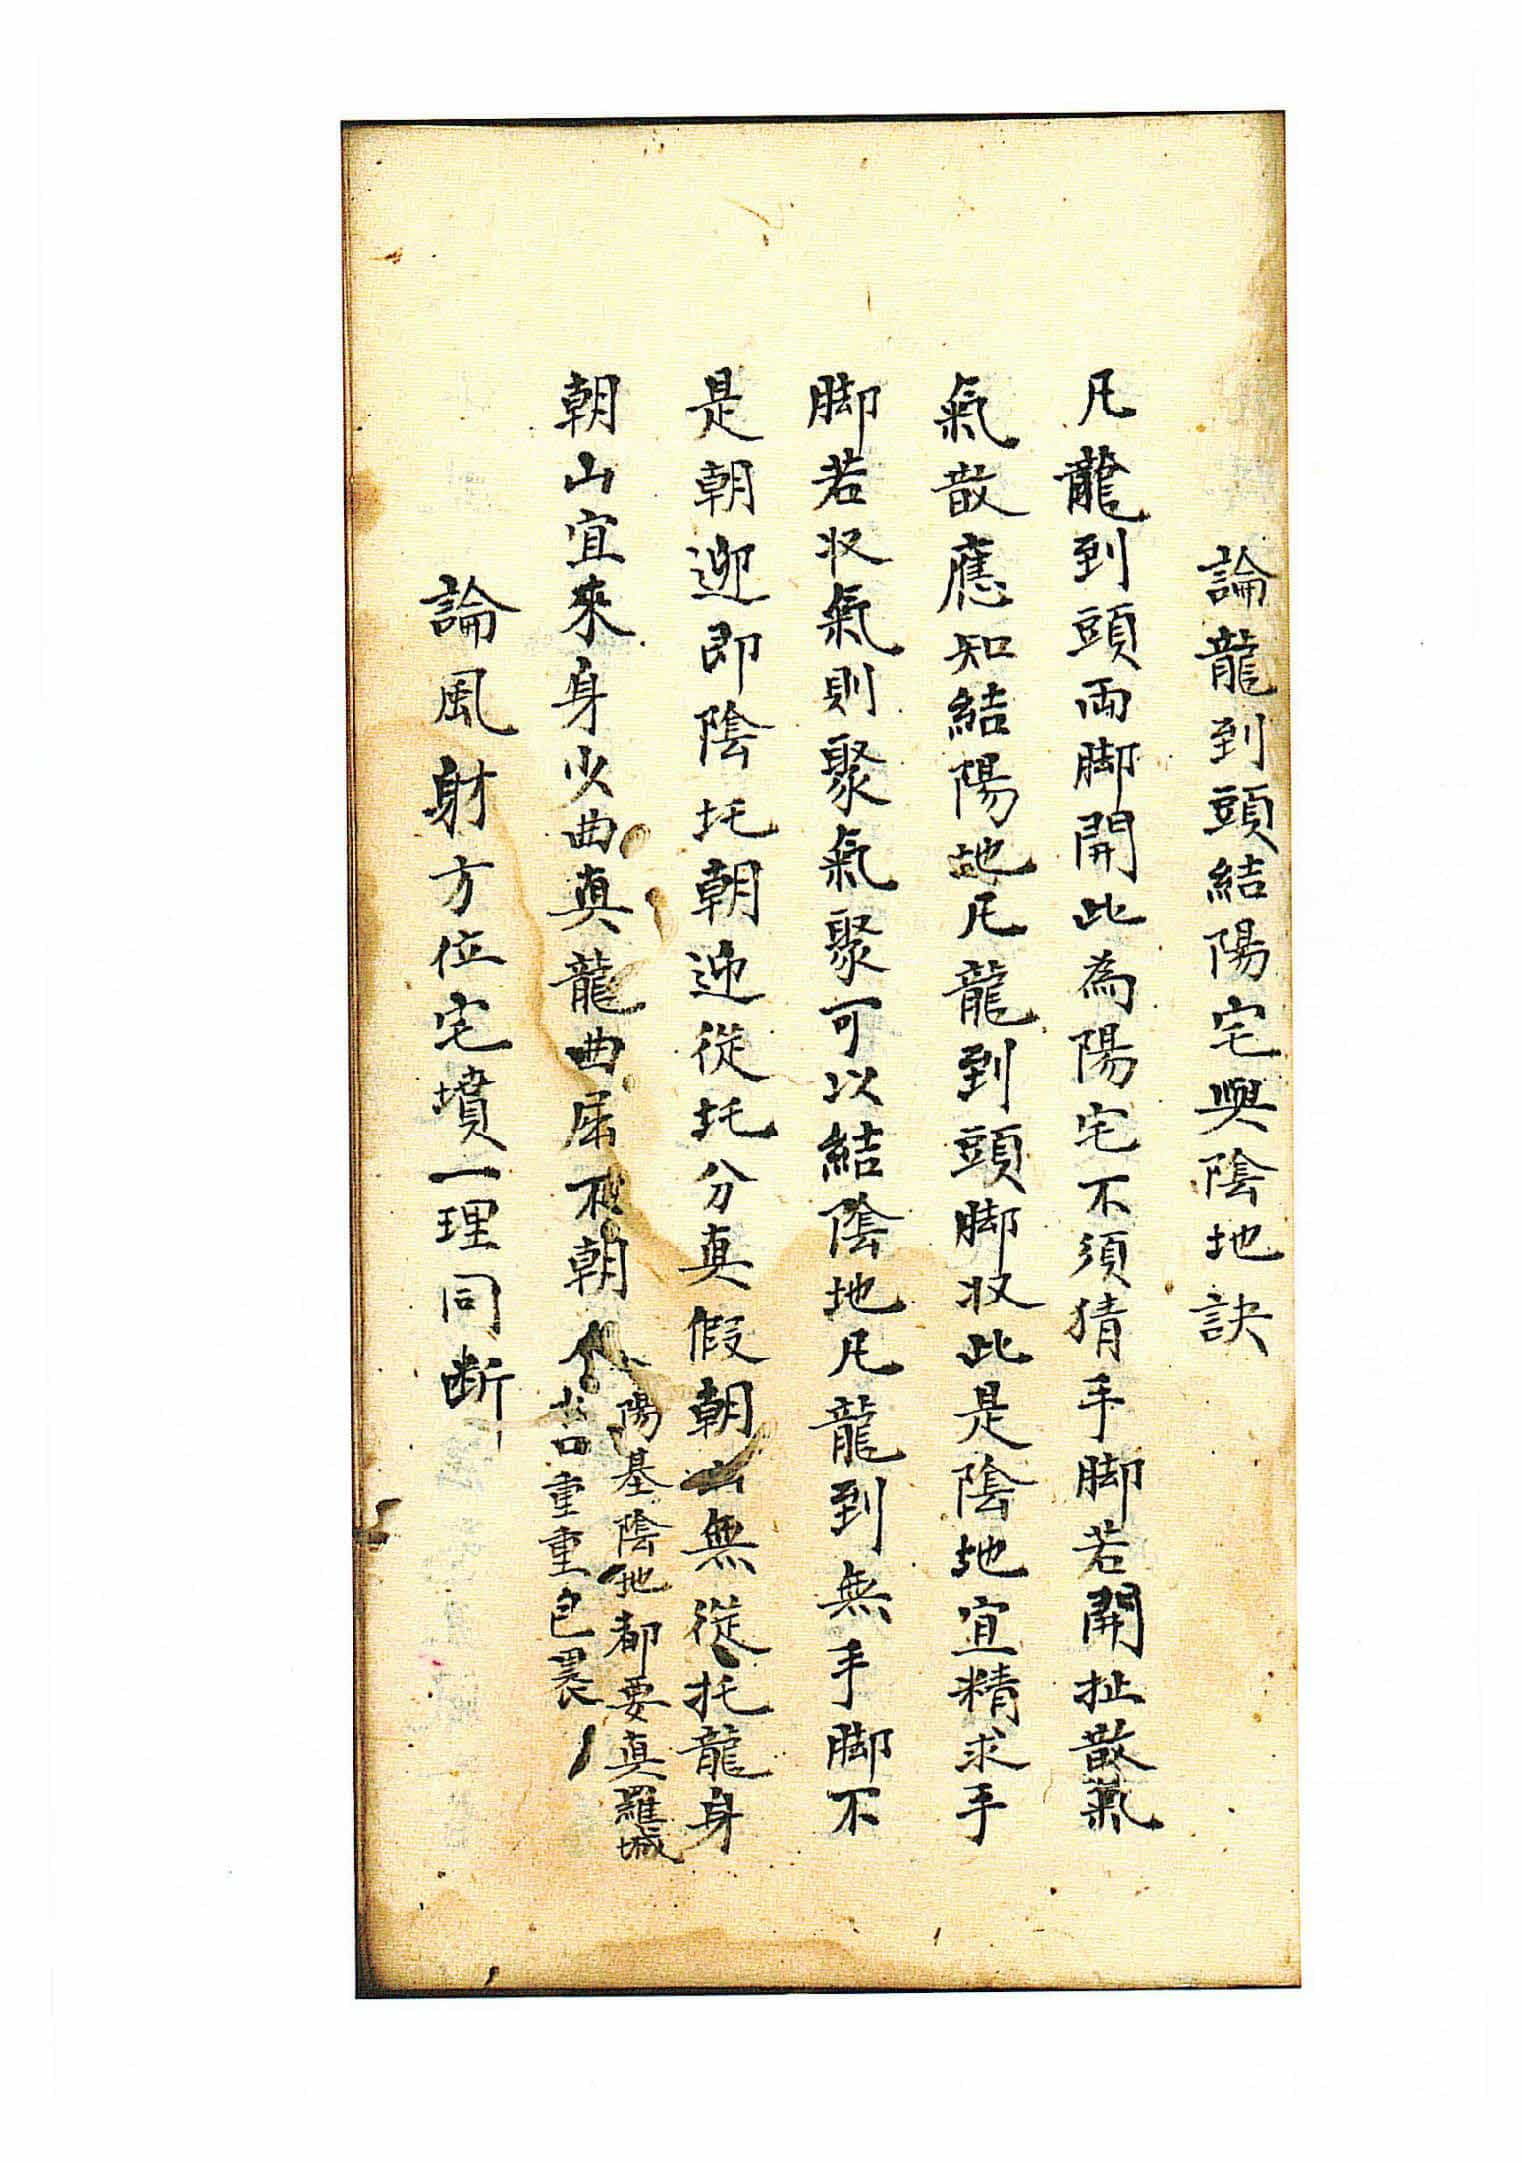 論龍到頭結陽宅與陰地訣
凡龍到頭両脚開此為陽宅不須猜手脚若開扯散氣
氣散應知結陽地凡龍到頭脚収此是陰地宜精求手
脚若収氣則聚氣聚可以結陰地凡龍到無手脚不
是朝迎即陰圫朝迎從圫分真假朝山無從托龍身
朝山宜來身火曲真龍曲屈不朝人
陽基陰地都要真羅城
重重包裹
論風射方位宅墳一理同断